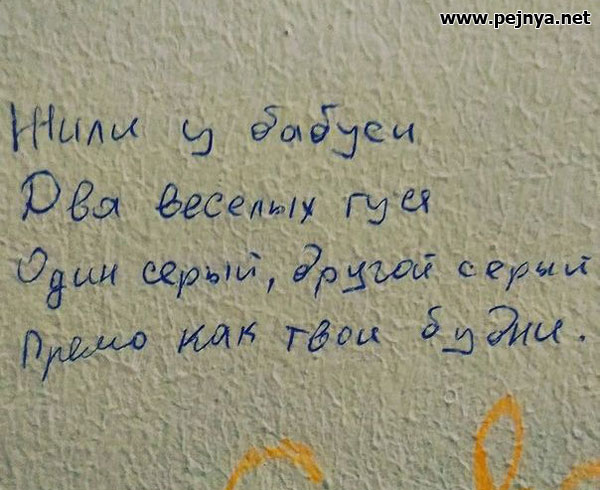 www.pejnya.net
Жили у бабуси
Два веселых гуся
Один серый, другой серый
Премо как твои будни.